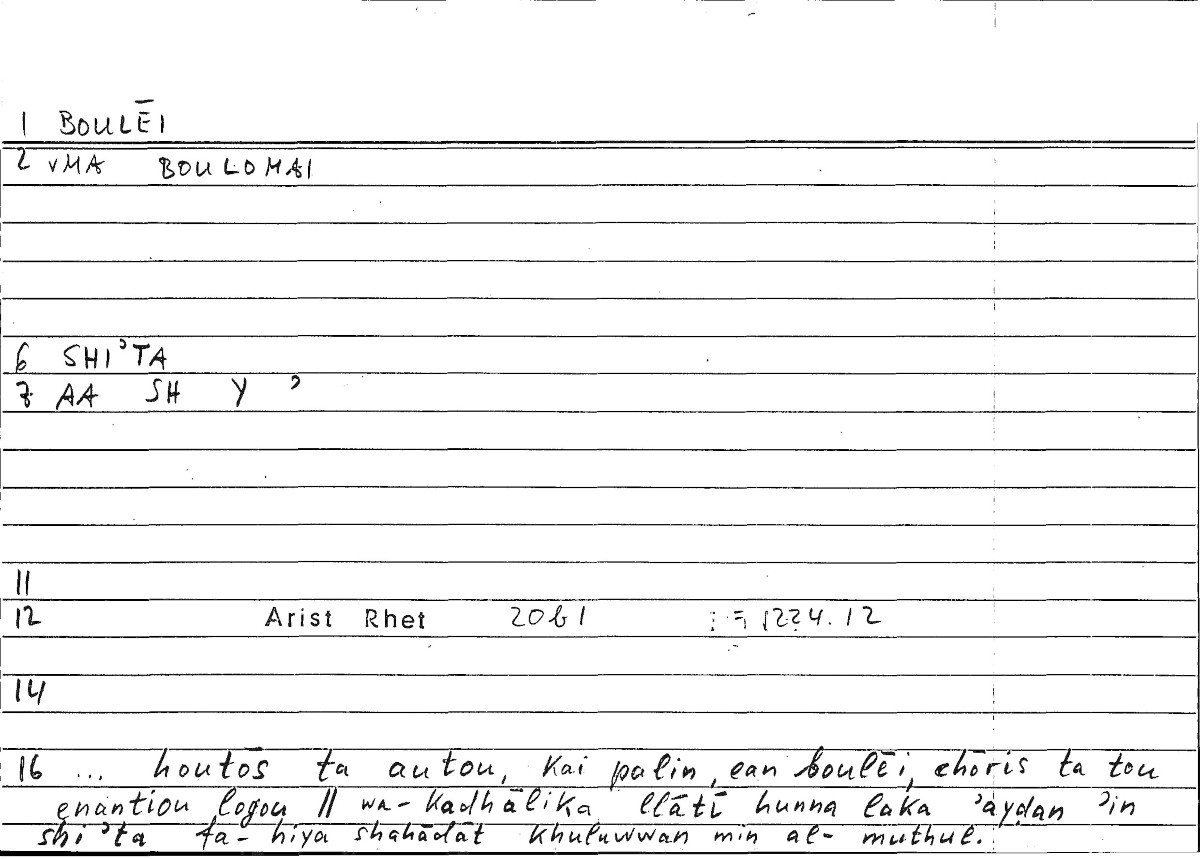 1 BOULĒI
2 VMA BOULOMAI
6 SHIʾTA
7 AA SH Y ʾ
11
12 Arist Rhet 20b1 224.12
14
16 ... houtōs ta autou, kai palin, ean boulēi, chōris ta tou
enantiou logou || wa-kadhālika llātī hunna laka ʾayḍan ʾin
shiʾta fa-hiya shahādāt khuluwwan min al-muthul.